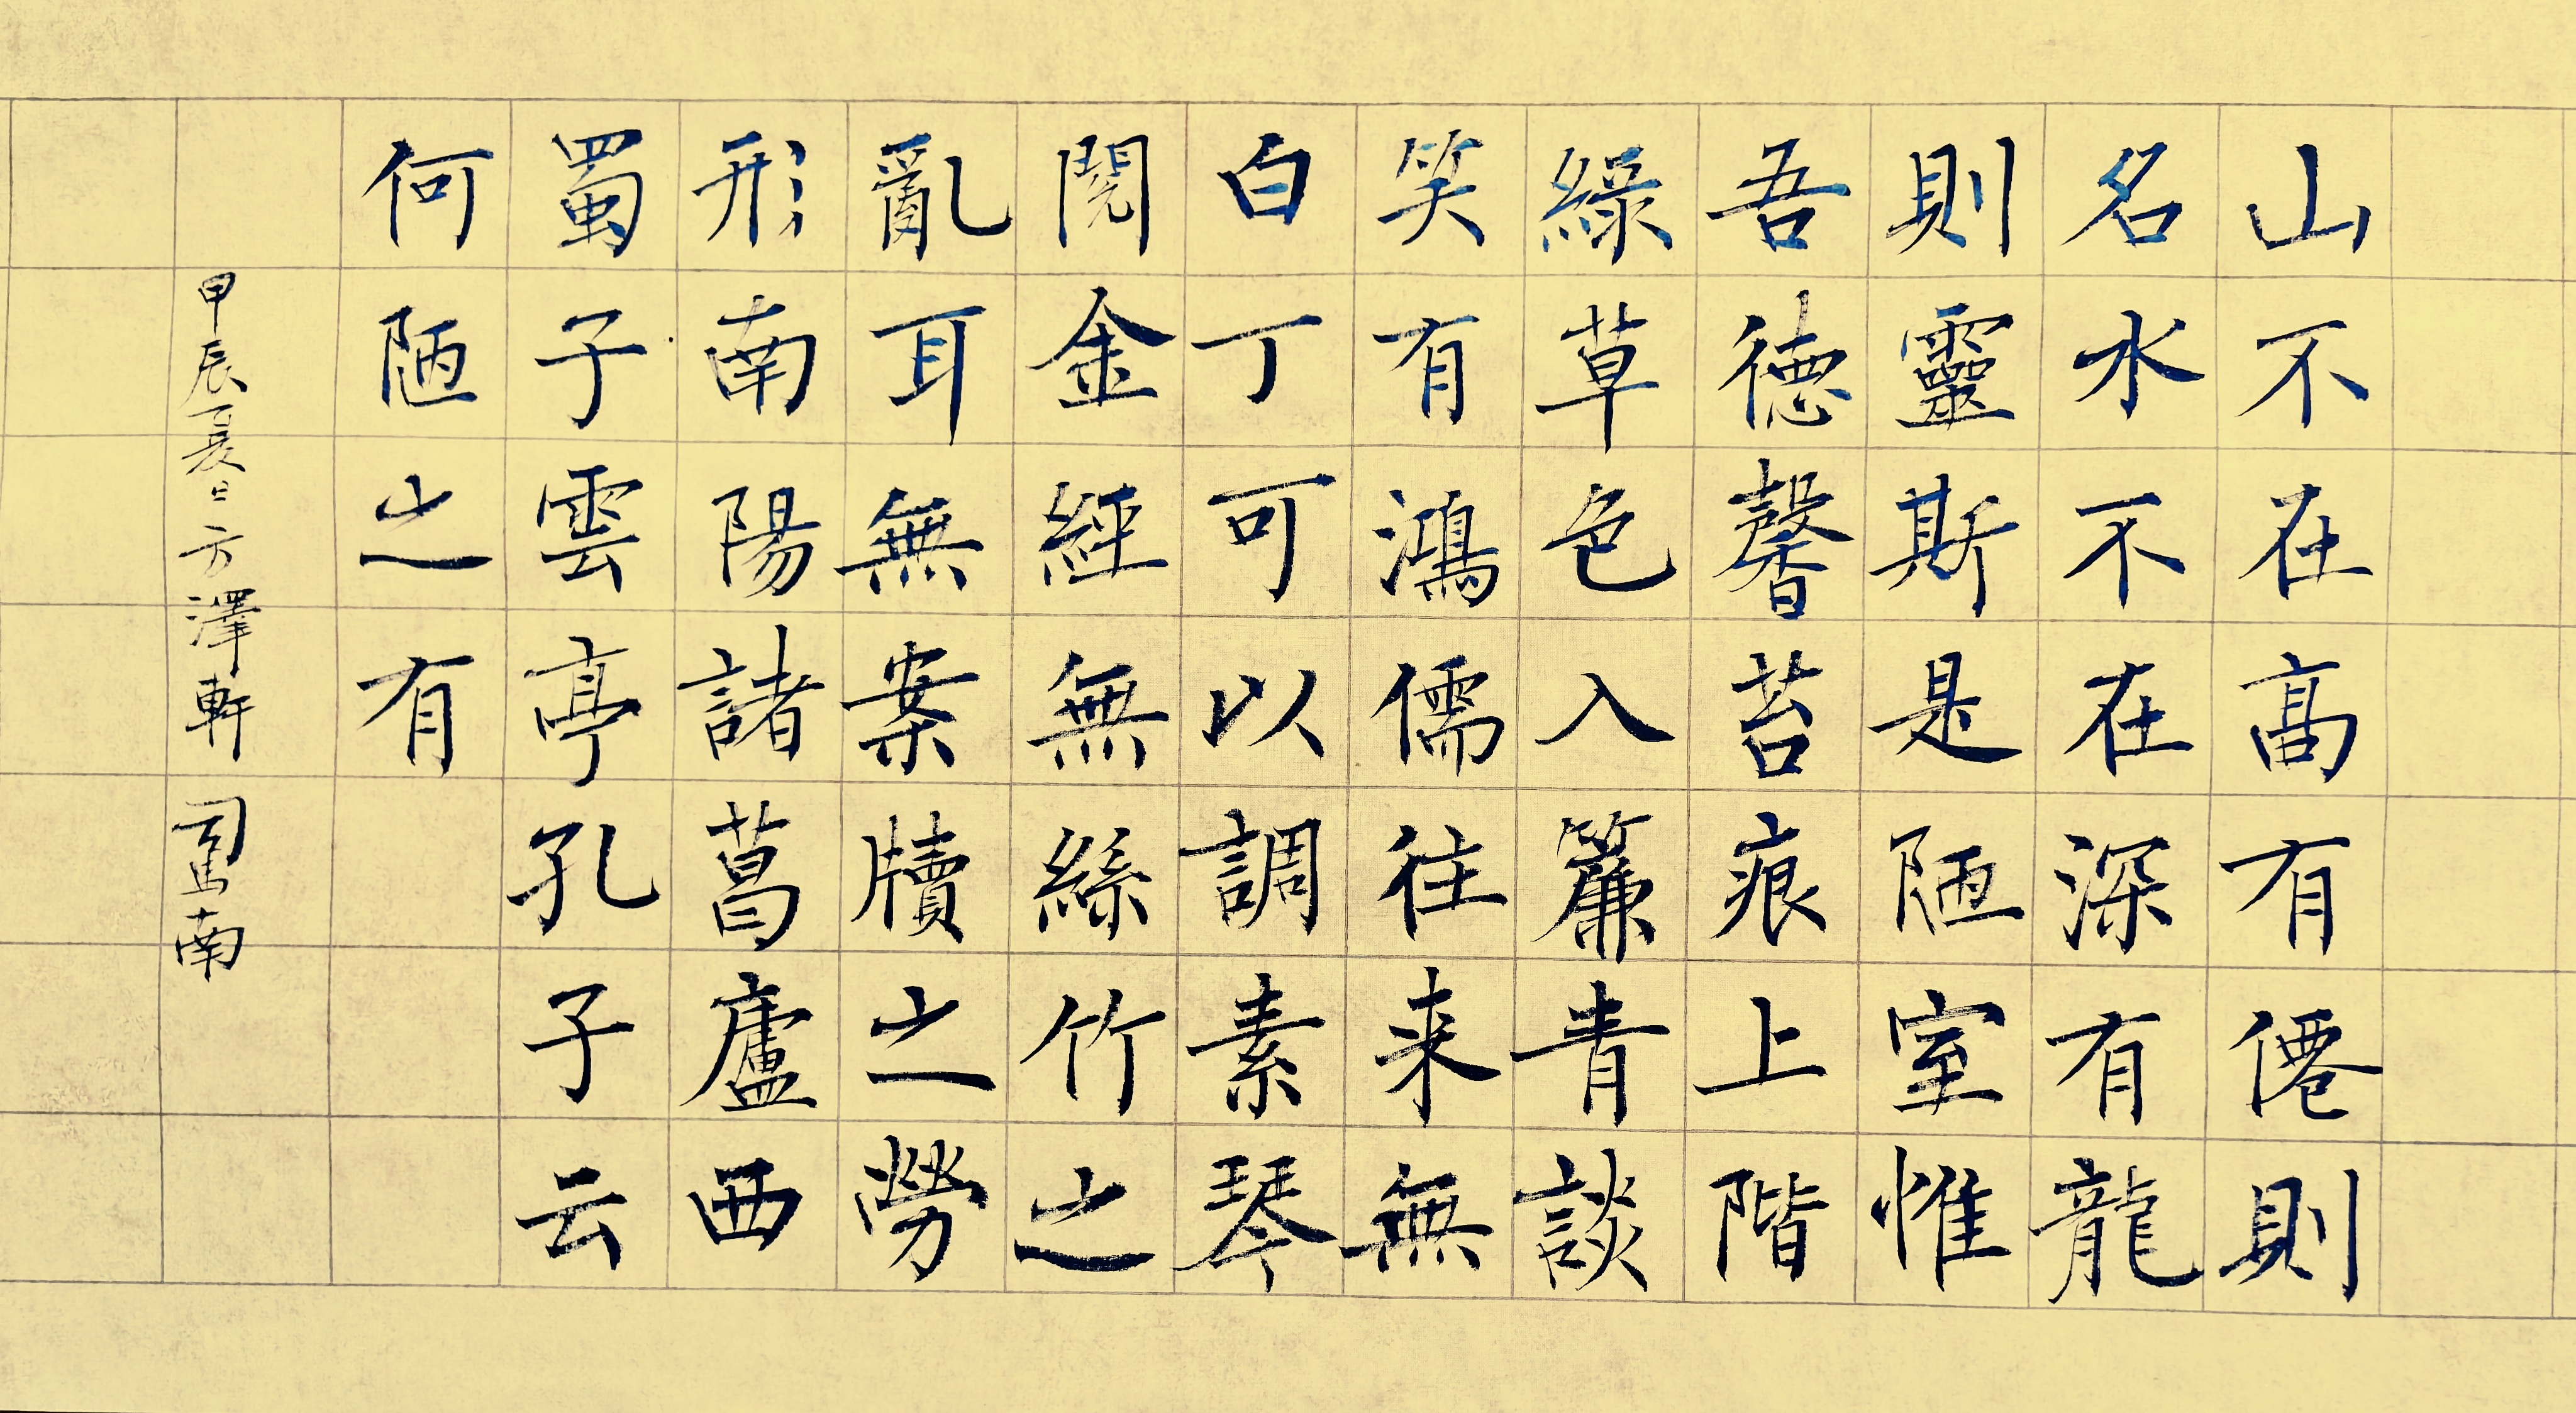 山不在高有僊則
名水不在深有龍
則靈斯是陋室惟
吾德馨苔痕上階
綠草色入簾青談
笑有鴻儒往来無
白丁可以調素琴
閱金經無絲竹之
亂耳無案牘之勞
形南陽諸葛廬西
蜀子雲亭孔子云
何陋之有
甲辰夏日方澤軒 南